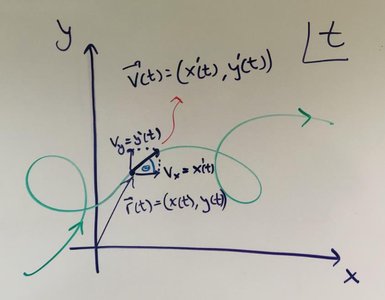 y
t
v⃗(t)=(x'(t), y'(t))
Vy=y'(t)
θ
Vx=x'(t)
r⃗(t)=(x(t), y(t))
x